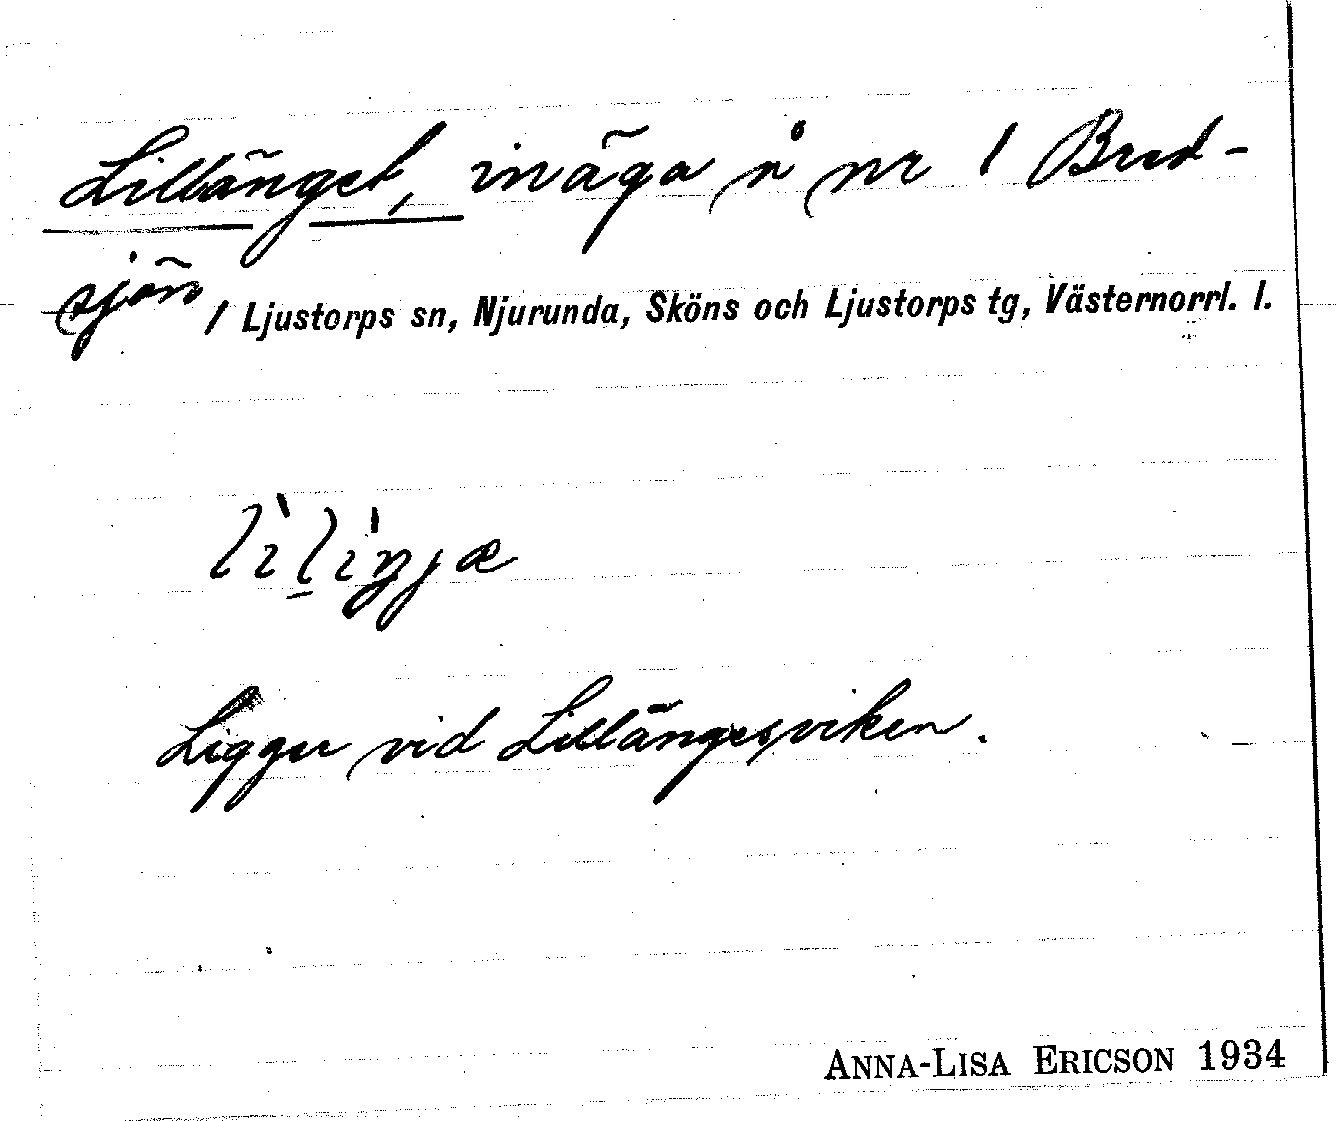 Lillänget, inäga å nr 1 Bred-
sjön / Ljustorps sn, Njurunda, Sköns och Ljustorps tg, Västernorrl. l.
Ligger vid Lillängesviken.
ANNA-LISA ERICSON 1934